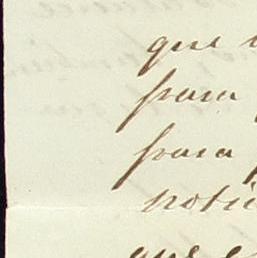 que
para
para
noti
que